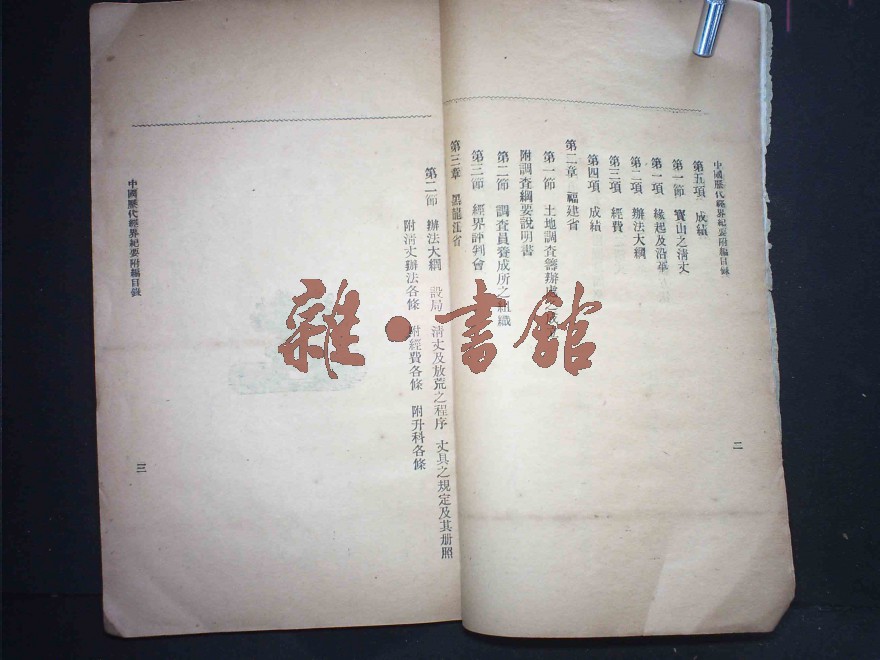 中國歷代經界紀要附編目錄
第五項 成績
第一節 寶山之清丈
第一項 緣起及沿革
第二項 辦法大綱
第三項 經費
第四項 成績
第二章 福建省
第一節 土地調查籌辦處之
附調查綱要說明書
第二節 調查員養成所之組織
第三節 經界評判會
第三章 黑龍江省
二
第二節 辦法大綱 設局 清丈及放荒之程序 丈具之規定及其册照
附清丈辦法各條 附經費各條 附升科各條
中國歷代經界紀要附編目錄
三
雜·書館